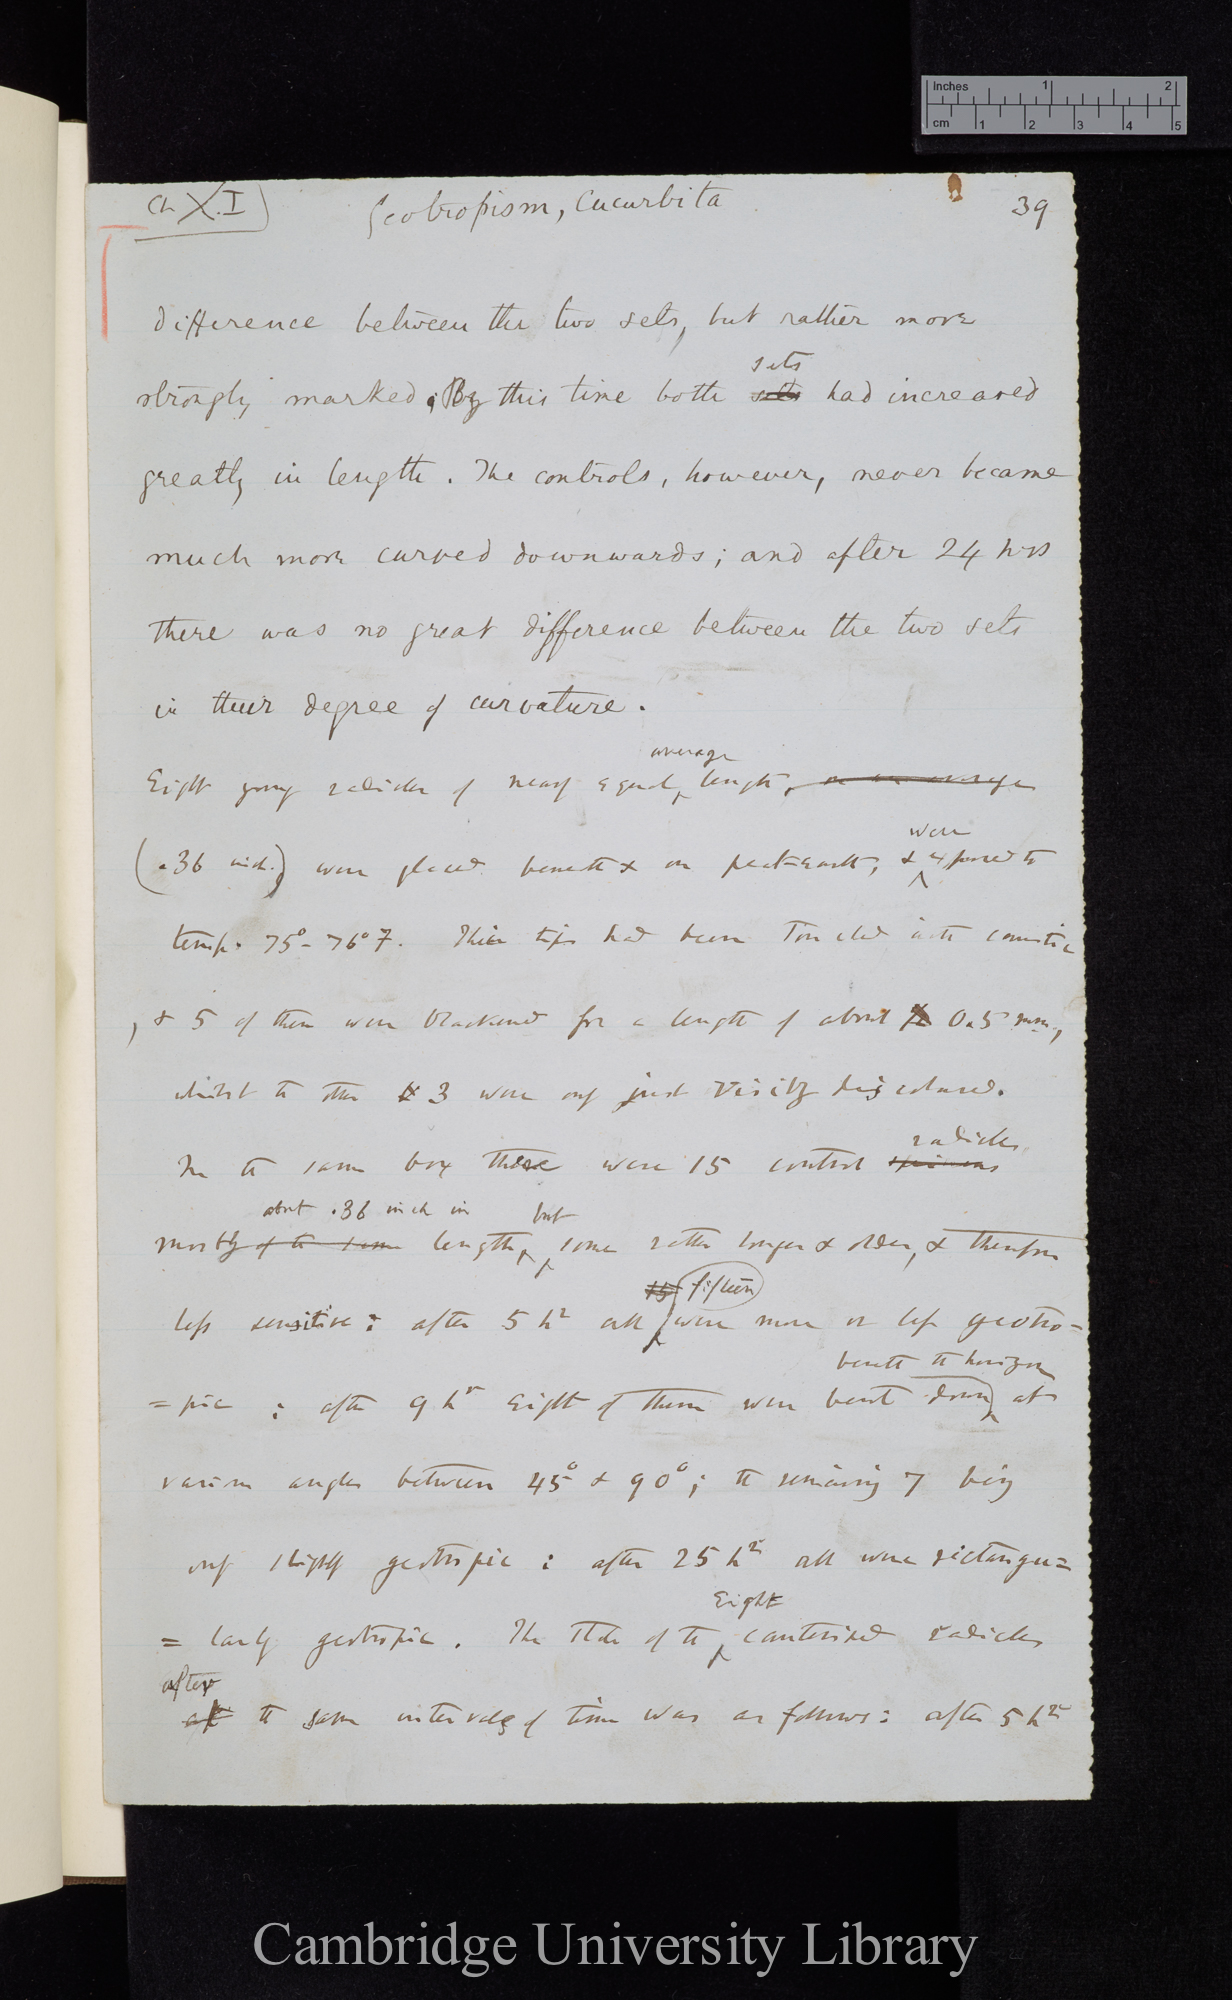 Ch X.I
Geotropism, Cucurbita
39
inches 1 2
cm 1 2 3 4 5
difference between the two sets, but rather more
sets
strongly marked. By this time both sets had increased
greatly in length. The controls, however, never became
much more curved downwards; and after 24 hrs
there was no great difference between the two sets
in their degree of curvature.
average
Eight young radicles of nearly equal length, on an average
were
(.36 inch.) were placed beneath & on peat-earth, & exposed to
temp. 75°- 76° F. Their tips had been touched with caustic
, & 5 of them were blackened for a length of about 0.5 mm,
whilst the other 3 were only just visibly discoloured.
radicles
In the same box there were 15 control specimens
about .36 inch in but
mostly of the same length, some rather longer & older, & therefore
15 fifteen
less sensitive: after 5 hr all were more or less geotro=
beneath the horizon
=pic : after 9 hr eight of them were bent down at
various angles between 45° & 90°; the remaining 7 being
only slightly geotropic : after 25 hr all were rectangu=
Eight
= larly geotropic. The state of the cauterised radicles
after
at the same intervals of time was as follows: after 5 hr
Cambridge University Library